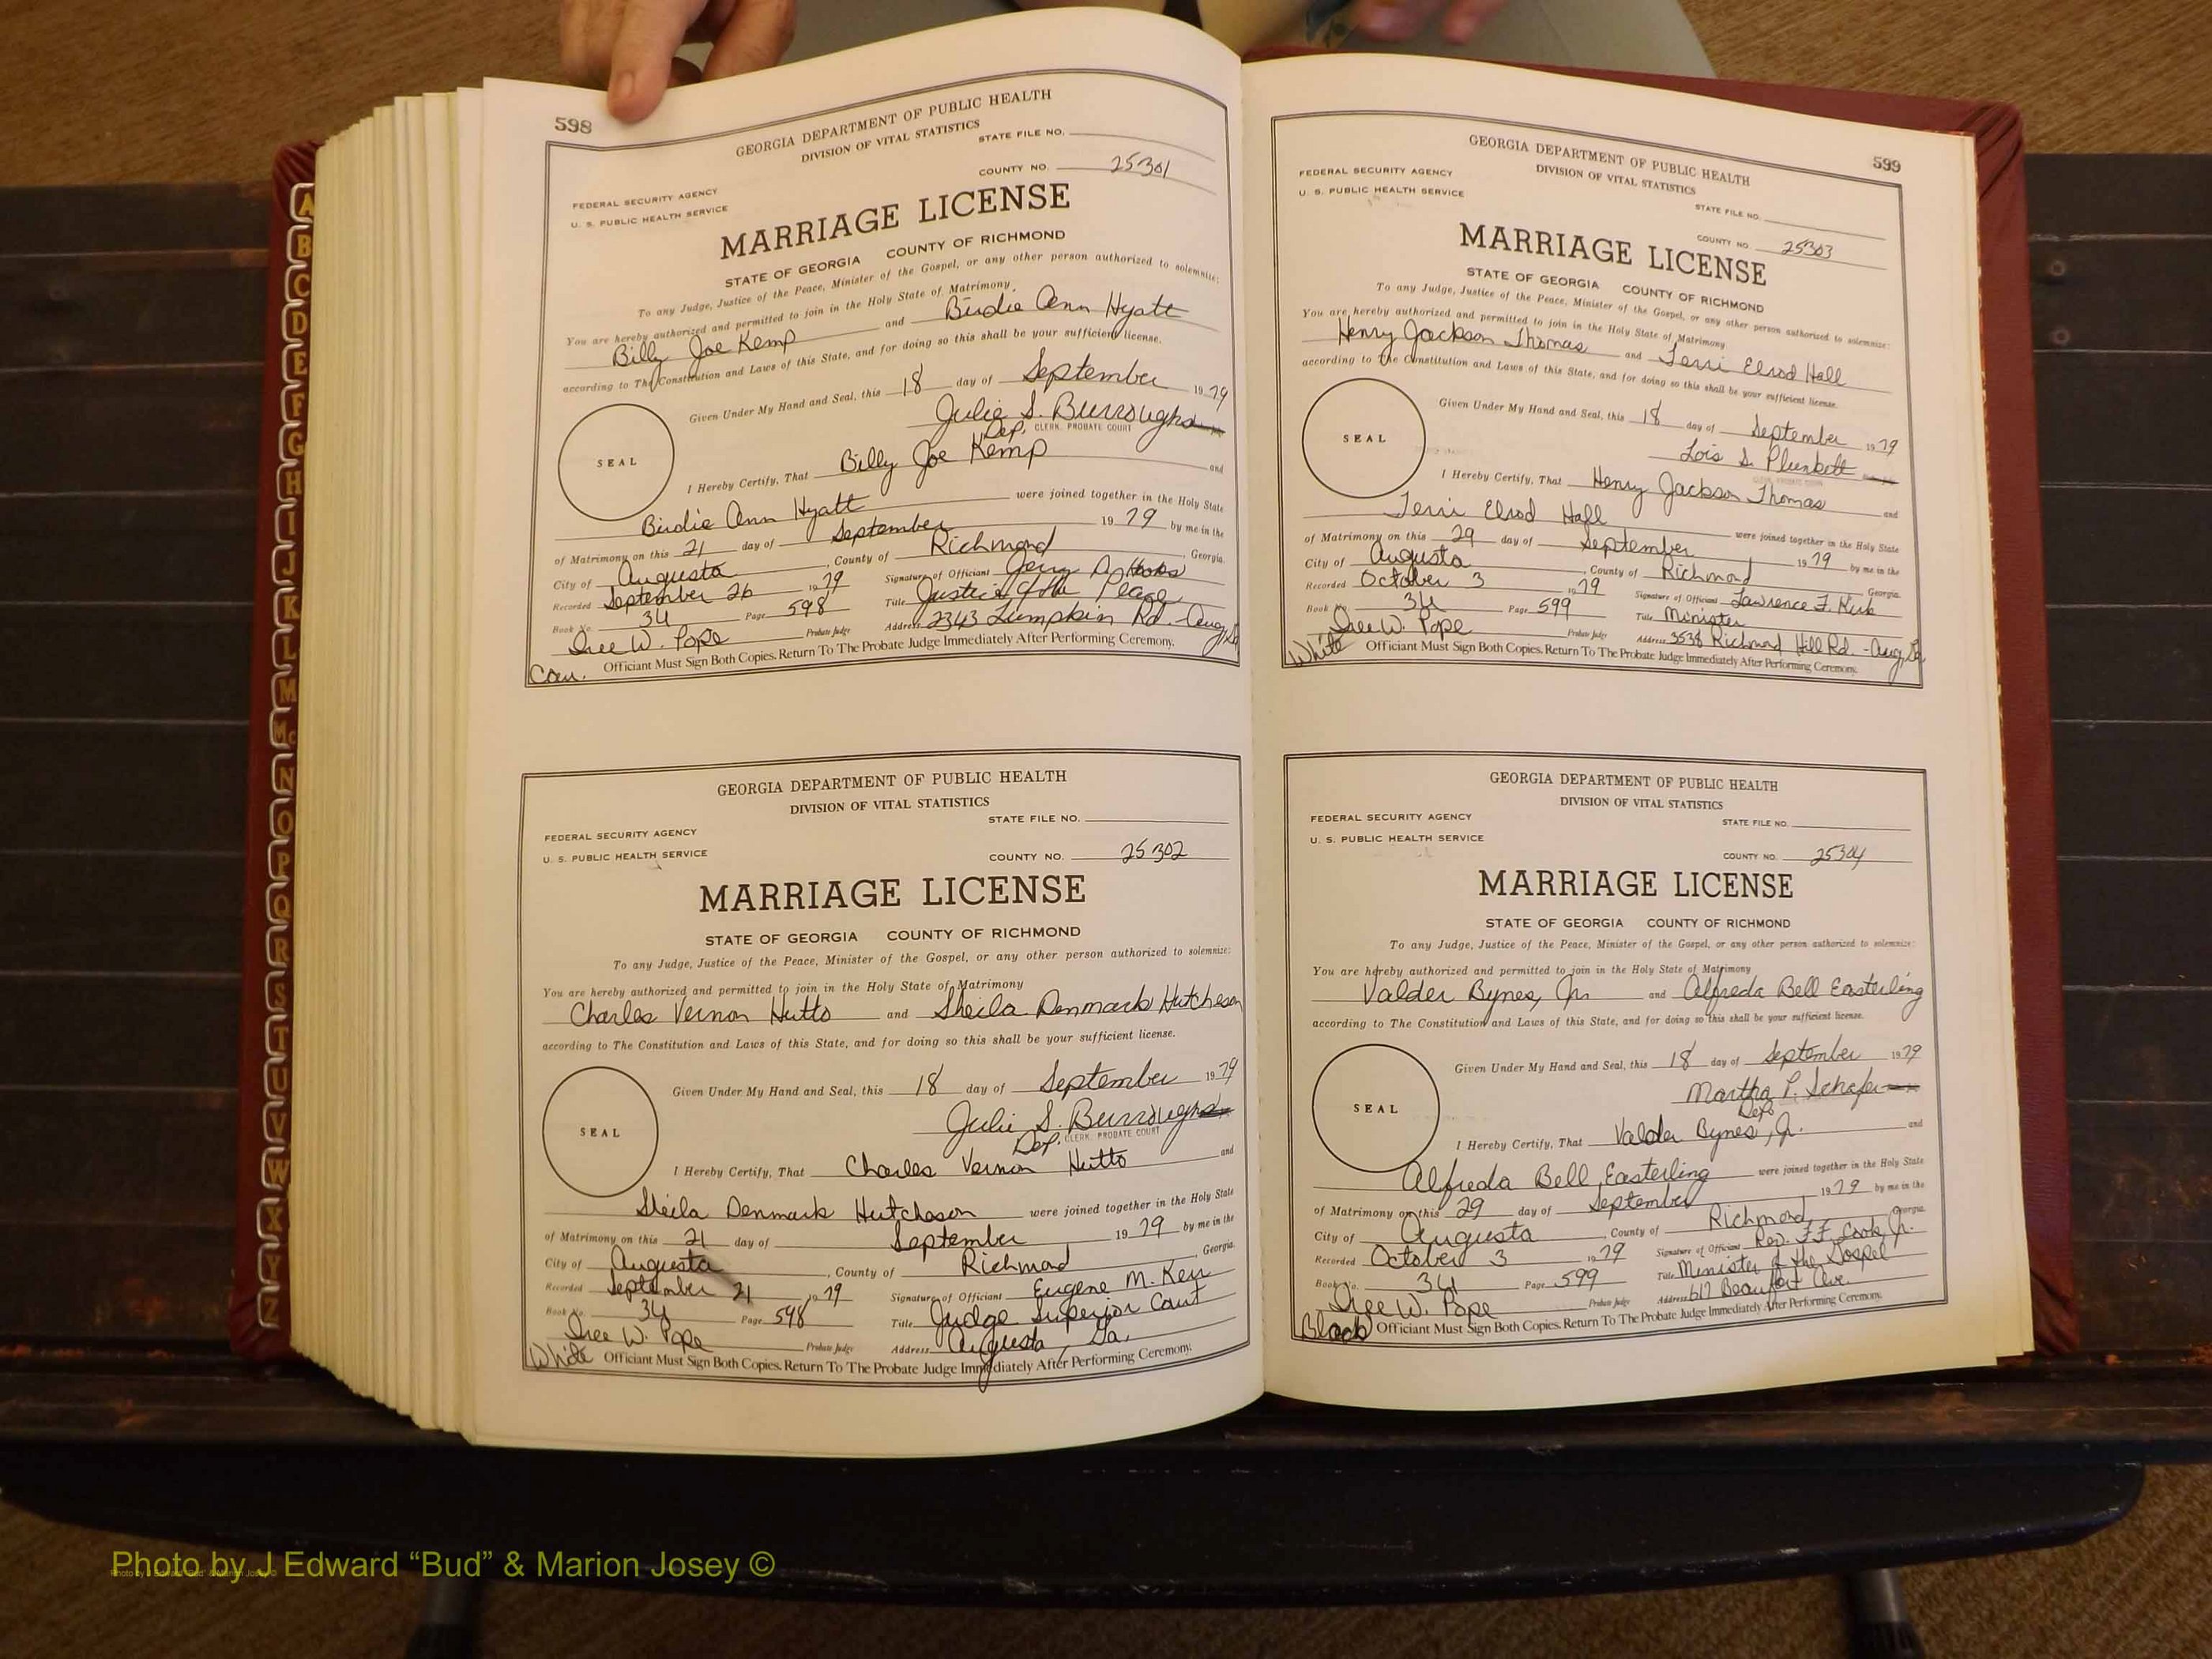 598
GEORGIA DEPARTMENT OF PUBLIC HEALTH
DIVISION OF VITAL STATISTICS
STATE FILE NO.
COUNTY NO. 25301
FEDERAL SECURITY AGENCY
U. S. PUBLIC HEALTH SERVICE
MARRIAGE LICENSE
STATE OF GEORGIA COUNTY OF RICHMOND
To any Judge, Justice of the Peace, Minister of the Gospel, or any other person authorized to solemnize:
You are hereby authorized and permitted to join in the Holy State of Matrimony
Billy Joe Kemp and Birdie Ann Hyatt
according to The Constitution and Laws of this State, and for doing so this shall be your sufficient license.
Given Under My Hand and Seal, this 18 day of September 1979
Julie S. Burroughs
Dep. CLERK, PROBATE COURT
SEAL
I Hereby Certify, That Billy Joe Kemp and
Birdie Ann Hyatt were joined together in the Holy State
of Matrimony on this 21 day of September 1979 by me in the
City of Augusta, County of Richmond, Georgia.
Recorded September 26 1979 Signature of Official Jerry D.
Book No. 34 Page 598 Title Justice of the Peace
Iree W. Pope Probate Judge Address 2343 Lumpkin Rd. Aug, Ga
Officiant Must Sign Both Copies. Return To The Probate Judge Immediately After Performing Ceremony.
Cau.
GEORGIA DEPARTMENT OF PUBLIC HEALTH
DIVISION OF VITAL STATISTICS
STATE FILE NO.
FEDERAL SECURITY AGENCY
U. S. PUBLIC HEALTH SERVICE
COUNTY NO. 25302
MARRIAGE LICENSE
STATE OF GEORGIA COUNTY OF RICHMOND
To any Judge, Justice of the Peace, Minister of the Gospel, or any other person authorized to solemnize:
You are hereby authorized and permitted to join in the Holy State of Matrimony
Charles Vernon Hutto and Sheila Denmark Hutcheson
according to The Constitution and Laws of this State, and for doing so this shall be your sufficient license.
Given Under My Hand and Seal, this 18 day of September 1979
Julie S. Burroughs
Dep. CLERK, PROBATE COURT
SEAL
I Hereby Certify, That Charles Vernon Hutto and
Sheila Denmark Hutcheson were joined together in the Holy State
of Matrimony on this 21 day of September 1979 by me in the
City of Augusta, County of Richmond, Georgia.
Recorded September 21 1979 Signature of Official Eugene M. Kerr
Book No. 34 Page 598 Title Judge Superior Court
Iree W. Pope Probate Judge Address Augusta, Ga.
White Officiant Must Sign Both Copies. Return To The Probate Judge Immediately After Performing Ceremony.
599
GEORGIA DEPARTMENT OF PUBLIC HEALTH
DIVISION OF VITAL STATISTICS
FEDERAL SECURITY AGENCY
U. S. PUBLIC HEALTH SERVICE
STATE FILE NO.
COUNTY NO. 25303
MARRIAGE LICENSE
STATE OF GEORGIA COUNTY OF RICHMOND
To any Judge, Justice of the Peace, Minister of the Gospel, or any other person authorized to solemnize:
You are hereby authorized and permitted to join in the Holy State of Matrimony
Henry Jackson Thomas and Terri Elrod Hall
according to The Constitution and Laws of this State, and for doing so this shall be your sufficient license.
Given Under My Hand and Seal, this 18 day of September 1979
Lois S. Plunkett
SEAL
I Hereby Certify, That Henry Jackson Thomas and
Terri Elrod Hall were joined together in the Holy State
of Matrimony on this 29 day of September 1979 by me in the
City of Augusta, County of Richmond, Georgia.
Recorded October 3 1979 Signature of Official Lawrence F. Kirk
Book No. 34 Page 599 Title Minister
Iree W. Pope Probate Judge Address 3538 Richmond Hill Rd. - Aug, Ga
White Officiant Must Sign Both Copies. Return To The Probate Judge Immediately After Performing Ceremony.
GEORGIA DEPARTMENT OF PUBLIC HEALTH
DIVISION OF VITAL STATISTICS
FEDERAL SECURITY AGENCY
STATE FILE NO.
U. S. PUBLIC HEALTH SERVICE
COUNTY NO. 25304
MARRIAGE LICENSE
STATE OF GEORGIA COUNTY OF RICHMOND
To any Judge, Justice of the Peace, Minister of the Gospel, or any other person authorized to solemnize:
You are hereby authorized and permitted to join in the Holy State of Matrimony
Valder Bynes, Jr. and Alfreda Bell Easterling
according to The Constitution and Laws of this State, and for doing so this shall be your sufficient license.
Given Under My Hand and Seal, this 18 day of September 1979
Martha P. Schafer
Dep.
SEAL
I Hereby Certify, That Valder Bynes, Jr. and
Alfreda Bell Easterling were joined together in the Holy State
of Matrimony on this 29 day of September 1979 by me in the
City of Augusta, County of Richmond, Georgia.
Recorded October 3 1979 Signature of Official Rev. F.F. Cook Jr.
Book No. 34 Page 599 Title Minister of the Gospel
Iree W. Pope Probate Judge Address 617 Beaufort Ave.
Black Officiant Must Sign Both Copies. Return To The Probate Judge Immediately After Performing Ceremony.
A
B
C
D
E
F
G
H
I
J
K
L
M
Mc
N
O
P
Q
R
S
T
U
V
W
X
Y
Z
Photo by J Edward “Bud” & Marion Josey ©